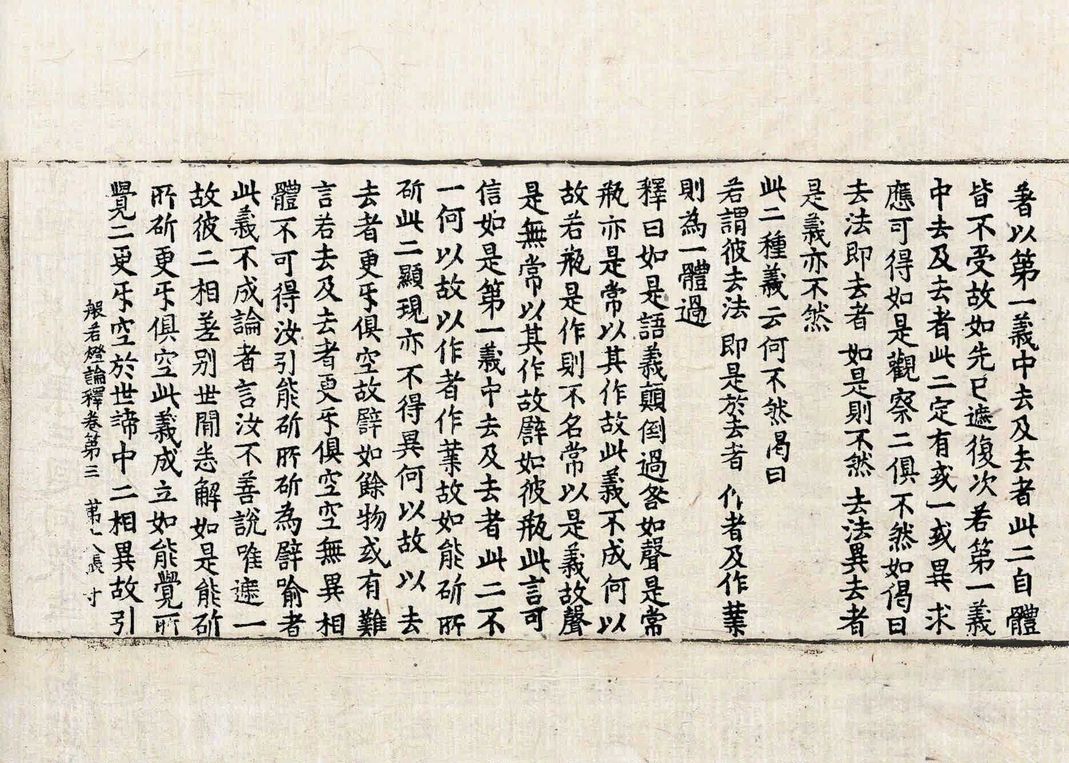 者以第一義中去及去者此二自體
皆不受故如先已遮復次若第一義
中去及去者此二定有或一或異求
應可得如是觀察二俱不然如偈曰
去法即去者 如是則不然 去法異去者
是義亦不然
此二種義云何不然偈曰
若謂彼去法 即是於去者 作者及作業
則為一體過
釋曰如是語義顛倒過咎如聲是常
瓶亦是常以其作故此義不成何以
故若瓶是作則不名常以是義故聲
是無常以其作故譬如彼瓶此言可
信如是第一義中去及去者此二不
一何以故以作者作業故如能斫所
斫此二顯現亦不得異何以故以去
去者更互俱空故譬如餘物或有難
言若去及去者更互俱空空無異相
體不可得汝引能斫所斫為譬喻者
此義不成論者言汝不善說唯遮一
故彼二相差別世間悉解如是能斫
所斫更互俱空此義成立如能覺所
覺二更互空於世諦中二相異故引
般若燈論釋卷第三 第 張 寸